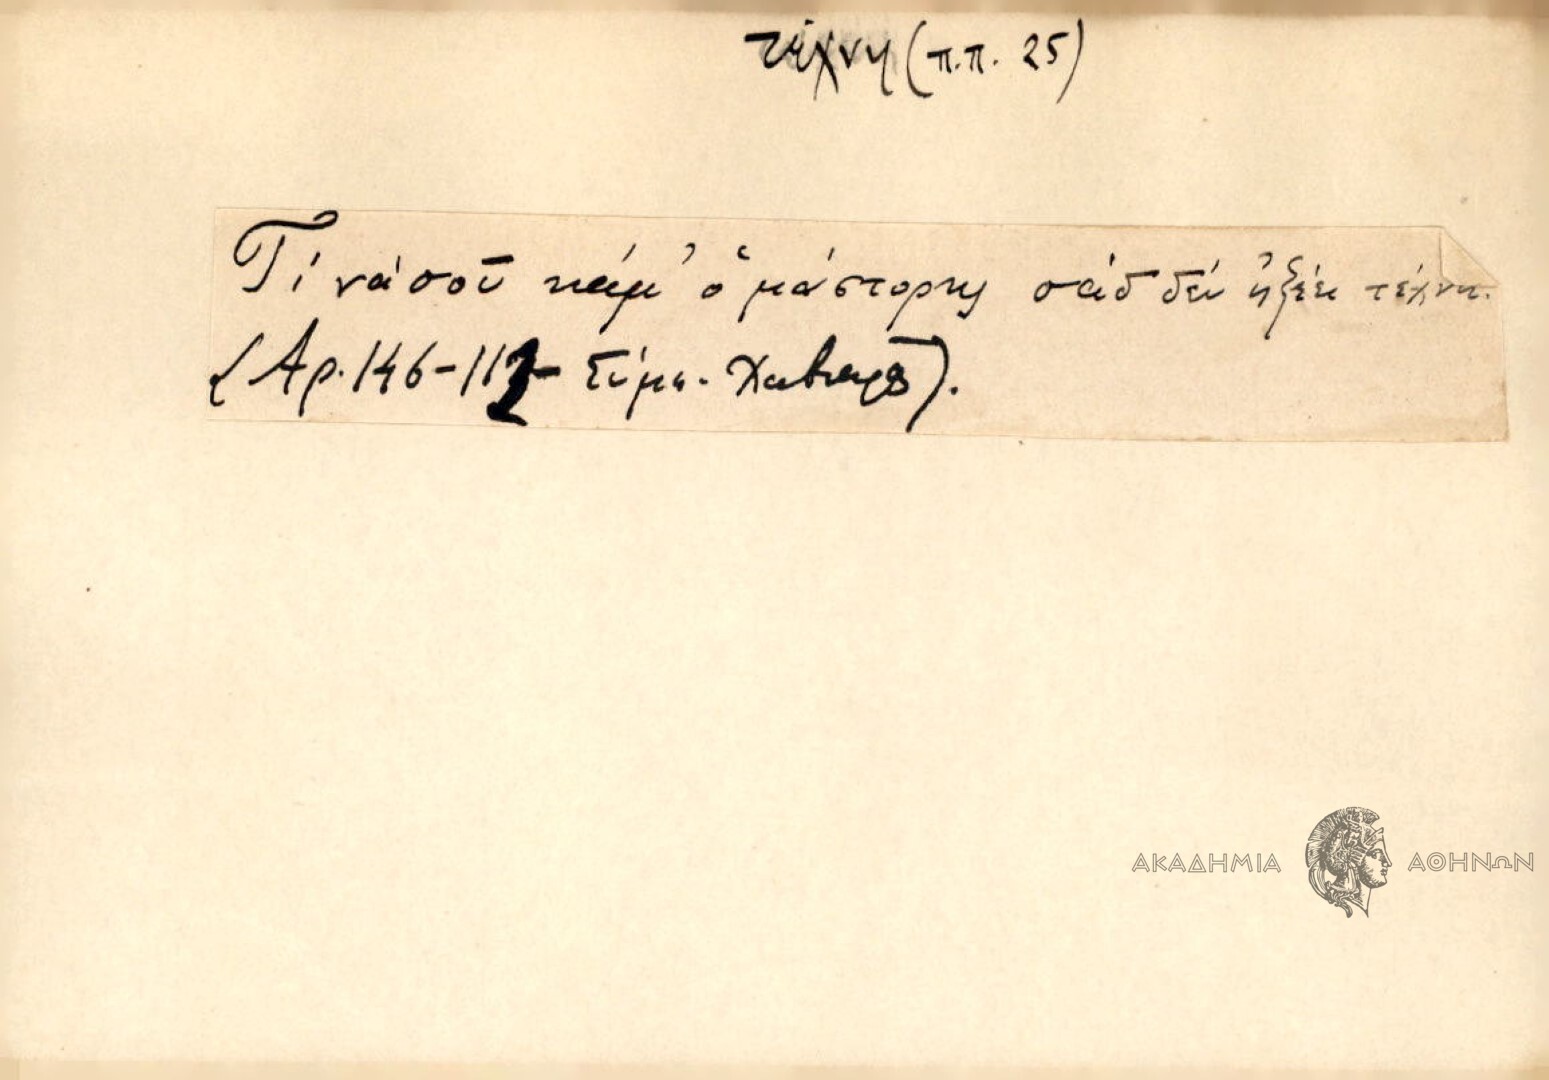 τέχνη (π.π. 25)
Τί νὰ σοῦ κάμ' ὁ μάστορης σὰδ δὲν ἠξέει τέχνη.
(Ἀρ. 146-112- Σύμη. Χαβιαρᾶ).
ΑΚΑΔΗΜΙΑ ΑΘΗΝΩΝ